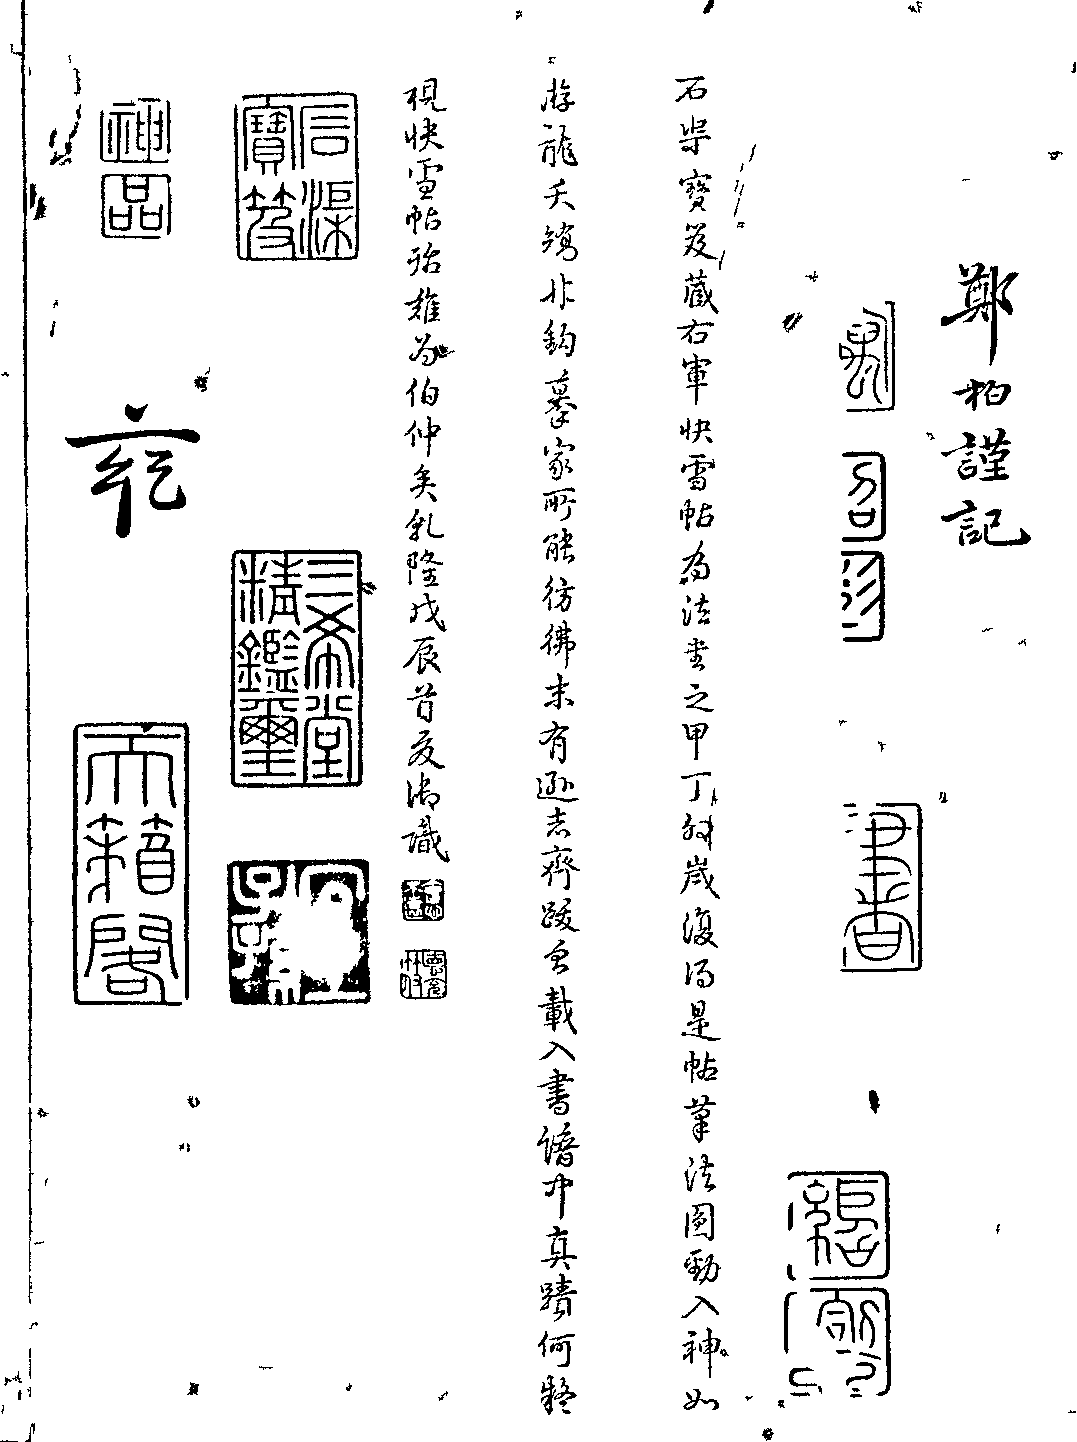 鄭柏謹記
石渠寶笈藏右軍快雪帖為法書之甲丁卯歲復得是帖筆法圓勁入神如
游龍夭矯非鈎摹家所能彷彿末有遜志齊跋曾載入書譜中真蹟何疑
視快雪帖殆難為伯仲矣乾隆戊辰首夏御識
石渠寶笈
三希堂精鑑璽
宜子孫
神品
天籟閣